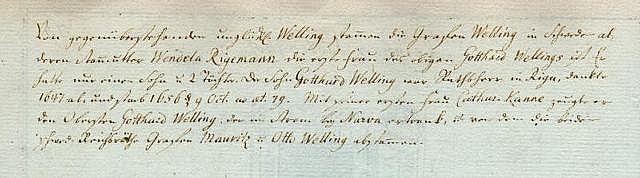 Von gegenüberstehenden Welling stammen die Grafen Welling in Schweden ab,
deren Stammutter Wendela Rigemann die erste Frau des obigen Gotthard Wellings ist Er
hatte nur einen Sohn u 2 Töchter. Der Sohn Gotthard Welling war Rathsherr in Riga, dankte
1647 ab und starb 1656 d 9 Oct. 79. Mit seiner ersten Frau Cathar. Kanne zeugte er
den Obersten Gotthard Welling, der im Strom bey Narva ertrank, von dem die beiden
schwed. Reichsräthe Grafen Mauritz u Otto Welling abstammen.